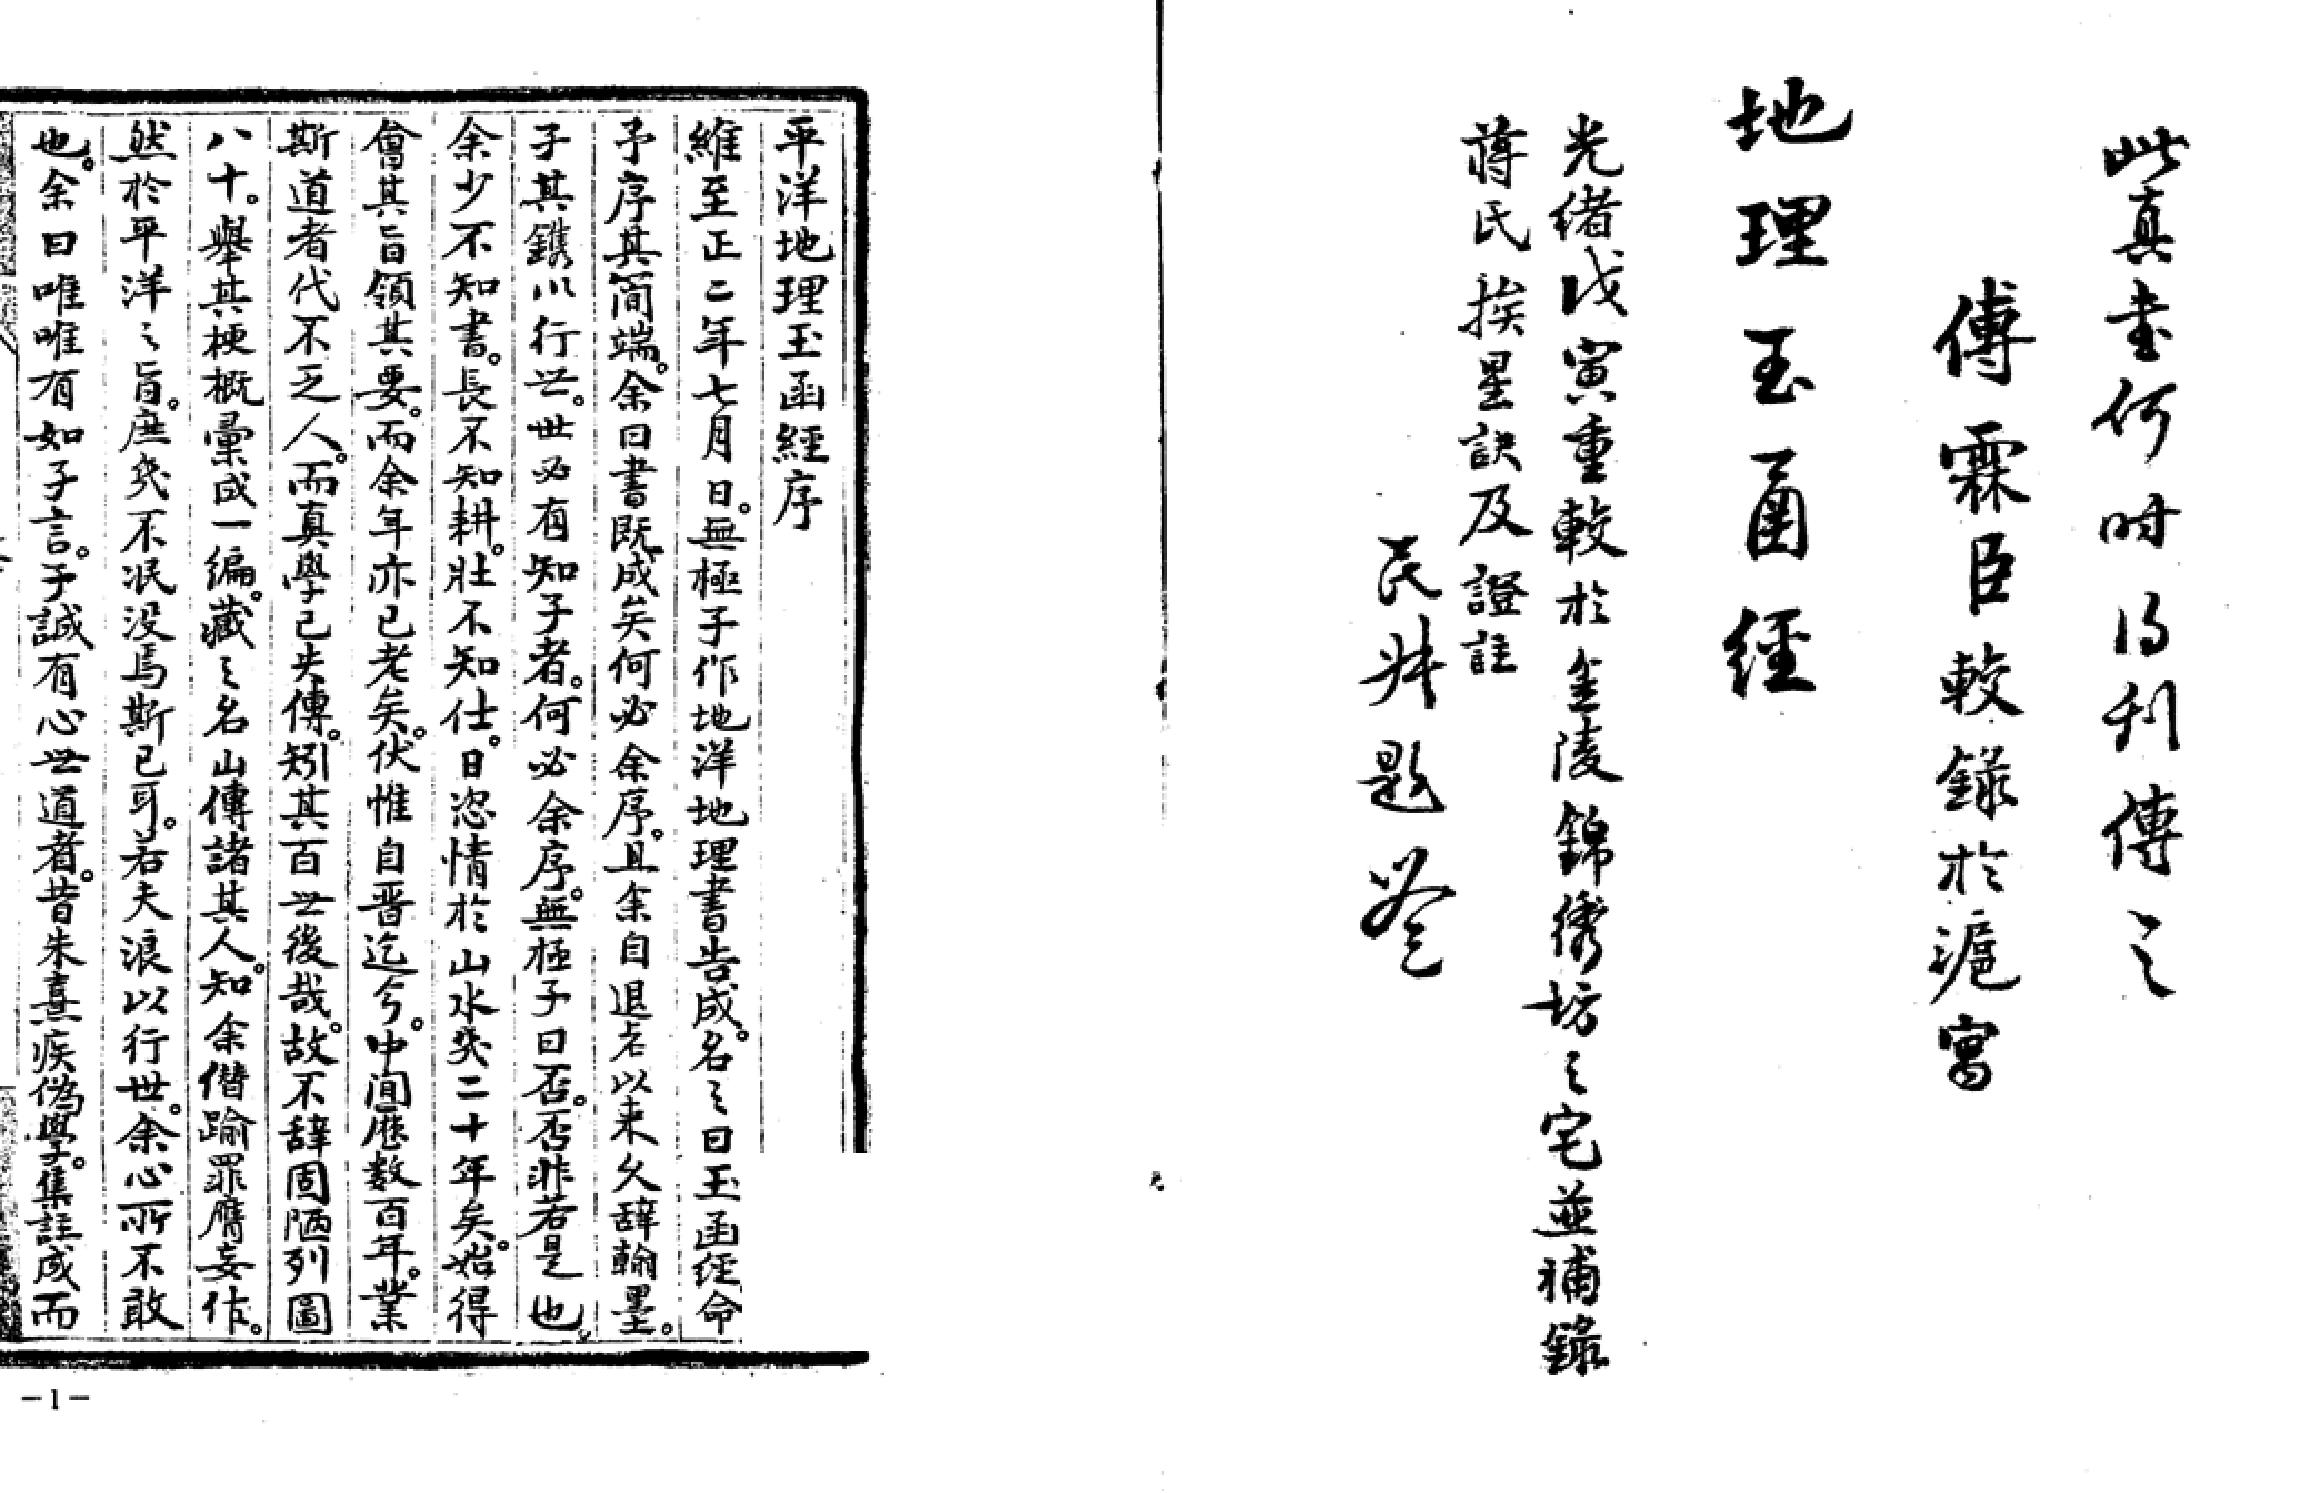 此真書何時得刋傳之
傅霖臣較錄於滬寓
地理玉函經
光緒戊寅重較於金陵錦繡坊之宅並補錄
蔣氏挨星訣及證註
民 題簽
平洋地理玉函經序
維至正二年七月日。無極子作地洋地理書告成。名之曰玉函經命
予序其簡端。余曰書既成矣何必余序。且余自退老以来久辭翰墨。
子其鐫以行世。世必有知子者。何必余序。無極子曰否。否非若是也。
余少不知書。長不知耕。壯不知仕。日恣情於山水癸二十年矣。始得
會其旨領其要。而余年亦已老矣。伏惟自晋迄今。中間歷数百年。業
斯道者代不乏人。而真學已失傳。矧其百世後哉。故不辞固陋列圖
八十。舉其梗概彙成一編。藏之名山傳諸其人。知余僭踰罪膺妄作。
然於平洋之旨。庶幾不泯没焉斯已耳。若夫浪以行世。余心所不敢
也。余曰唯唯有如子言。予誠有心世道者。昔朱熹疾偽學。集註成而
-1-